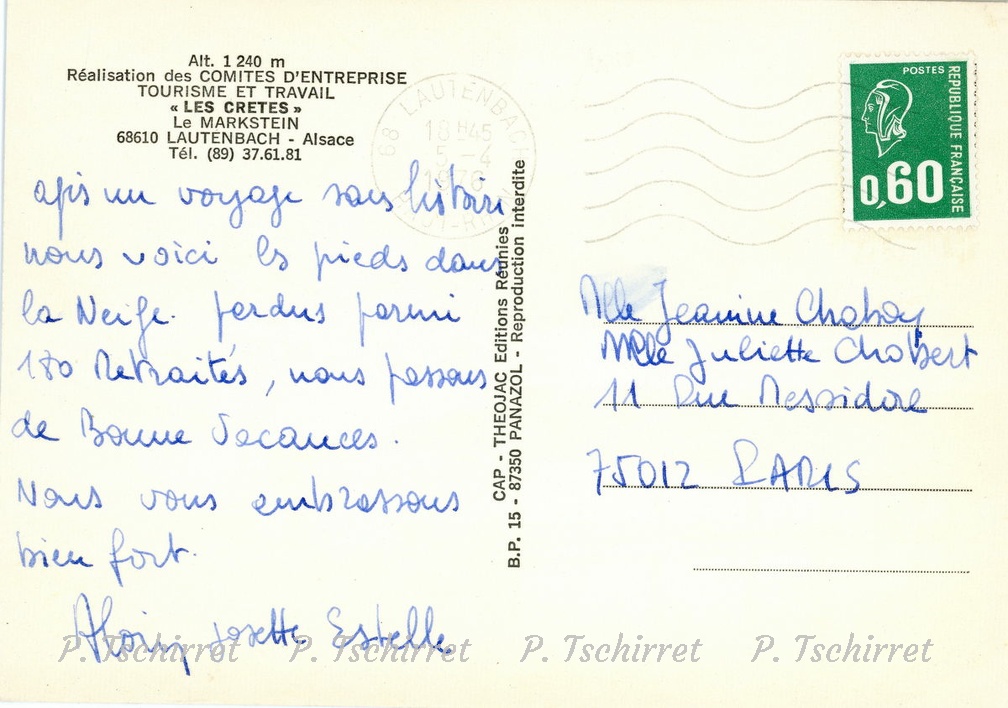 Alt. 1 240 m
Réalisation des COMITES D'ENTREPRISE
TOURISME ET TRAVAIL
« LES CRETES »
Le MARKSTEIN
68610 LAUTENBACH - Alsace
Tél. (89) 37.61.81
68 LAUTENBACH
18 H45
5 - 4
1976
HAUT-RHIN
POSTES
REPUBLIQUE FRANÇAISE
0,60
apis un voyage sans histoire
nous voici les pieds dans
la Neige. perdus parmi
180 Retraités, nous passons
de Bonne Vacances.
Nous vous embrassons
bien fort.
Josette Estelle
CAP - THEOJAC Editions Réunies
B.P. 15 - 87350 PANAZOL - Reproduction interdite
Mlle Jeanine Chaboy
Mlle Juliette Chobert
11 Rue Messidore
75012 PARIS
P. Tschirret P. Tschirret P. Tschirret P. Tschirret